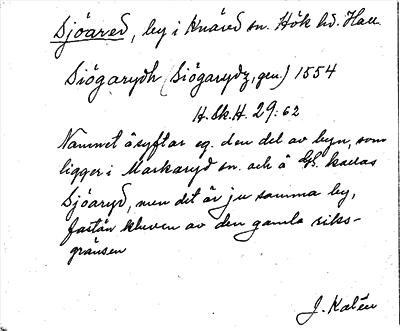 Sjöared, by i Knäred sn. Hök hd. Hall
Siögarydh (Siögarydz, gen.) 1554
H. Sk. H. 29:62
Namnet åsyftar eg. den del av byn, som
ligger i Markaryd sn. och å GS. kallas
Sjöaryd, men det är ju samma by,
fastän kluven av den gamla riks-
gränsen
J. Kalén